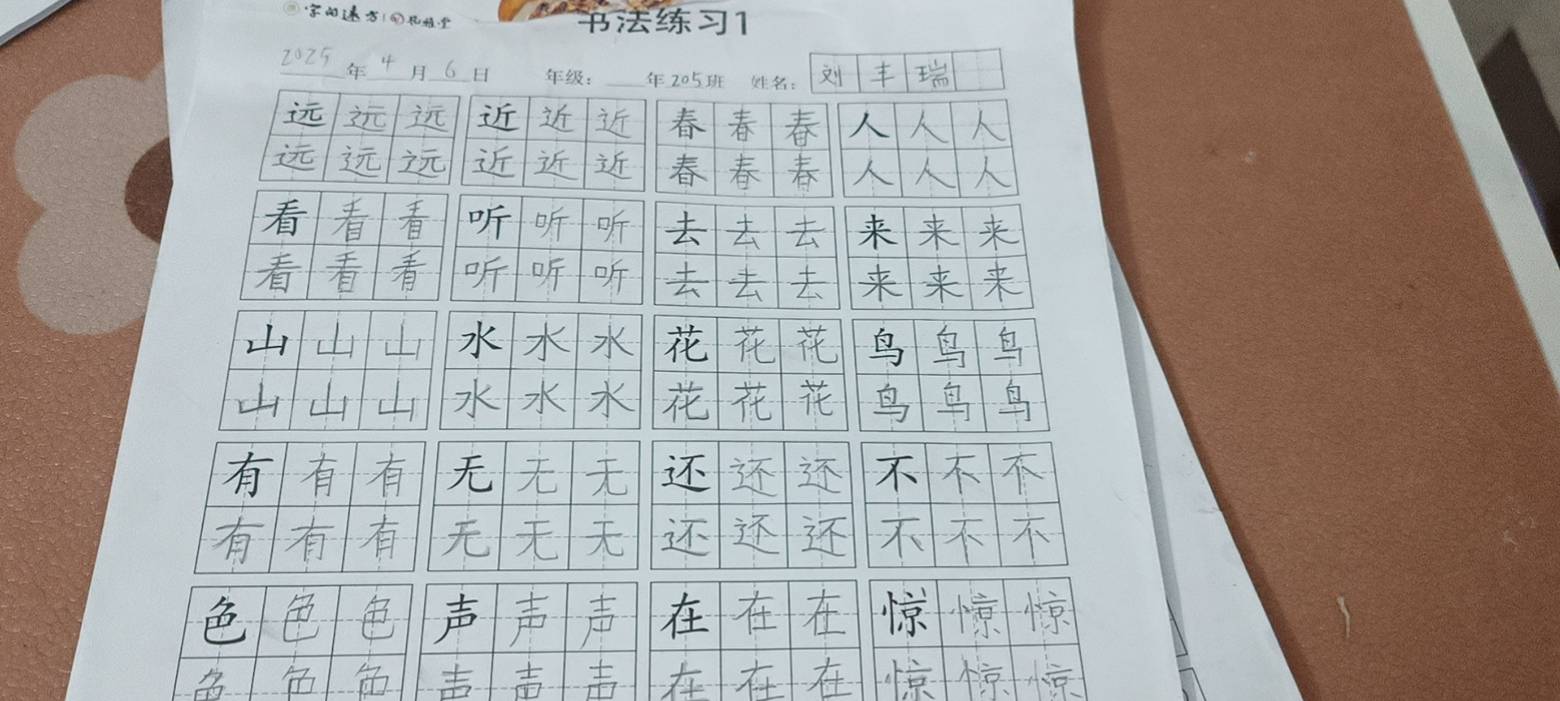 字向远方
书法练习1
2025年4月6日 年级：____年205班 姓名：刘丰瑞
远远远 近近近 春春春 人人人
远远远 近近近 春春春 人人人
看看看 听听听 去去去 来来来
看看看 听听听 去去去 来来来
山山山 水水水 花花花 鸟鸟鸟
山山山 水水水 花花花 鸟鸟鸟
有有有 无无无 还还还 不不不
有有有 无无无 还还还 不不不
色色色 声声声 在在在 惊惊惊
色色色 声声声 在在在 惊惊惊